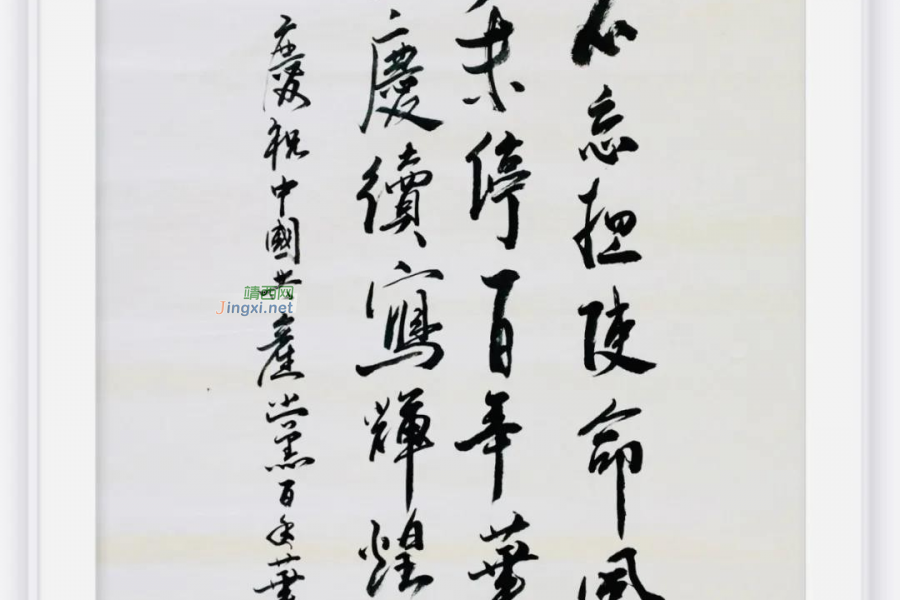 不忘担使命風
未停百年華
慶續寫輝煌
慶祝中國共產黨百年華
靖西网
Jingxi.net